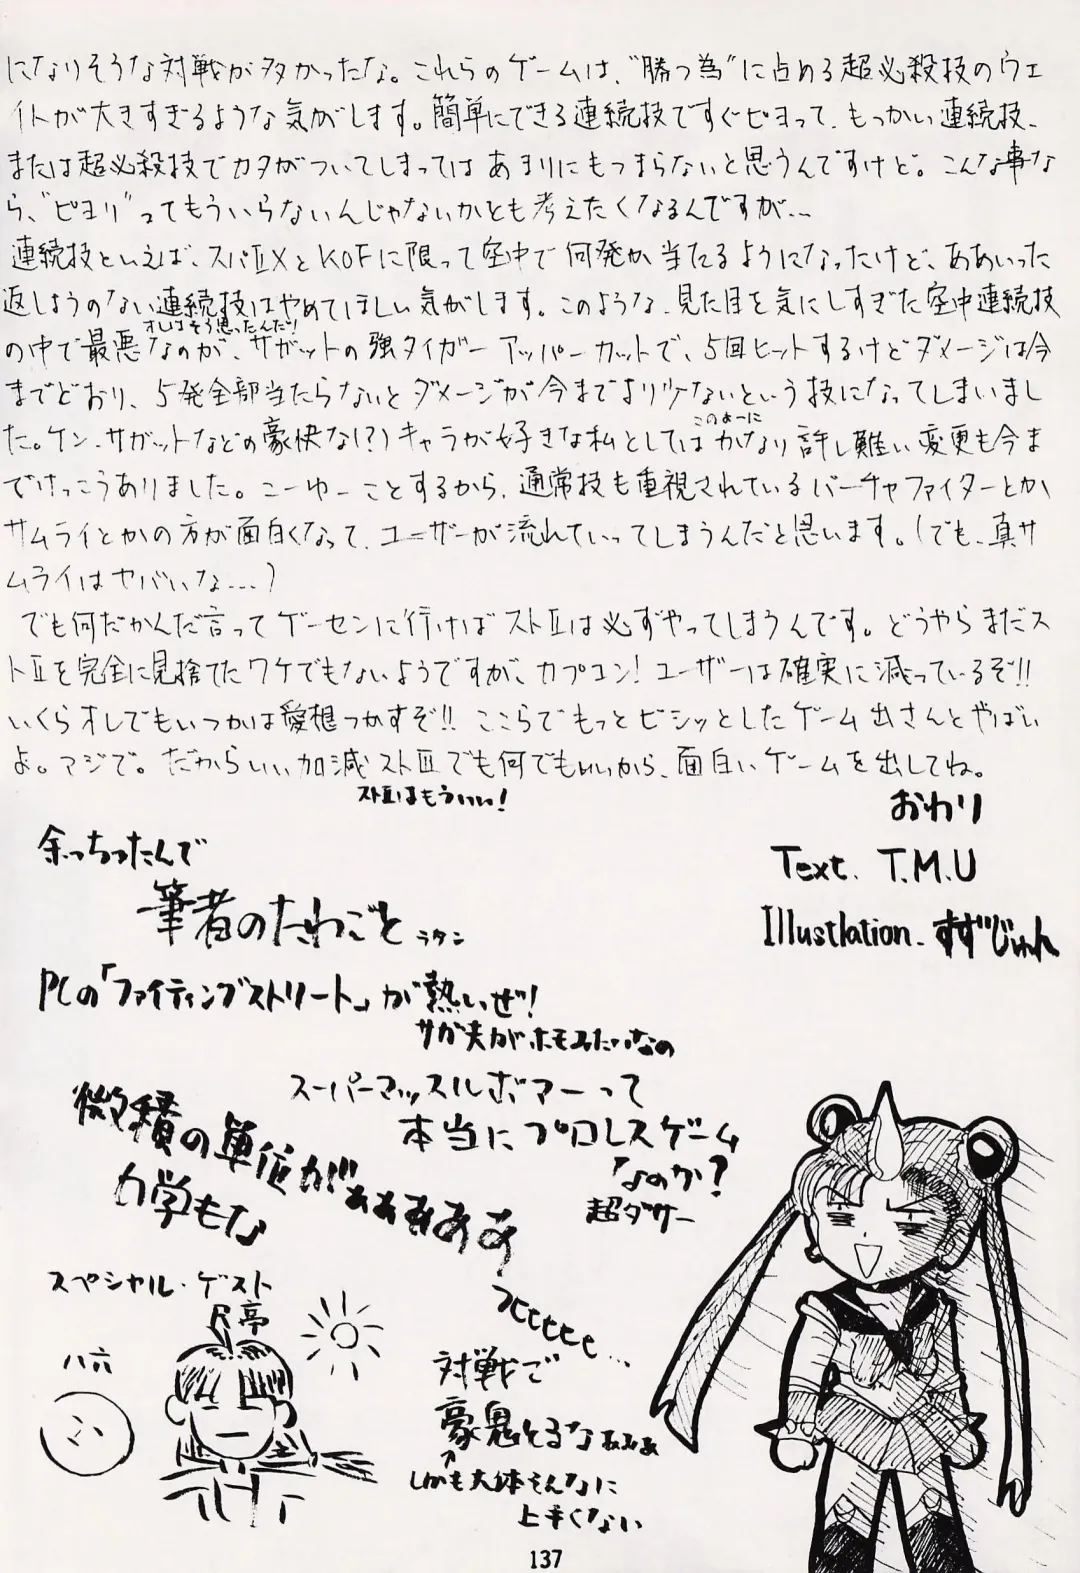 になりそうな対戦が多かったな。これらのゲームは、“勝つ為”に占める超必殺技のウェ
イトが大きすぎるような気がします。簡単にできる連続技ですぐピヨって、もっかい連続技、
または超必殺技でカタがついてしまってはあまりにもつまらないと思うんですけど。こんな事な
ら、“ピヨリ”ってもういらないんじゃないかとも考えたくなるんですが…
連続技といえば、スパⅡXとKOFに限って空中で何発か当たるようになったけど、ああいった
返しようのない連続技はやめてほしい気がします。このような、見た目を気にしすぎた空中連続技
オレはそう思ったんだ!
の中で最悪なのが、サガットの強タイガーアッパーカットで、5回ヒットするけどダメージは今
までどおり、5発全部当たらないとダメージが今までより少ないという技になってしまいまし
た。ケン、サガットなどの豪快な(?)キャラが好きな私としてはかなり許し難い変更も今ま
このよーに
でけっこうありました。こーゆーことするから、通常技も重視されているバーチャファイターとか
サムライとかの方が面白くなって、ユーザーが流れていってしまうんだと思います。(でも、真サ
ムライはヤバいな…)
でも何だかんだ言ってゲーセンに行けばストⅡは必ずやってしまうんです。どうやらまだス
トⅡを完全に見捨てたワケでもないようですが、カプコン!ユーザーは確実に減っているぞ!!
いくらオレでもいつかは愛想つかすぞ!!ここらでもっとビシッとしたゲーム出さんとやばい
よ。マジで。だからいい加減ストⅢでも何でもいいから、面白いゲームを出してね。
ストⅡはもういい!
おわり
Text. T.M.U
Illustlation. すず゛じゅん
余っちったんで
筆者のたわごと
PCの「ファイティングストリート」が熱いぜ!
サガ夫がホモみたいなの
スーパーマッスルボマーって
本当にプロレスゲーム
なのか?
超ダサー
微積の単位がぁぁぁぁぁ
力学もな
スペシャル・ゲスト
八六
対戦で
豪鬼とるなぁぁぁ
しかも大体そんなに
上手くない
137